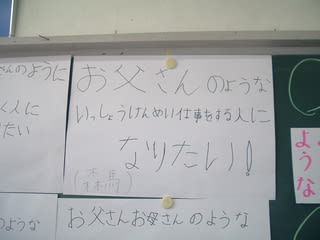 さんのように
人に
たい
お父さんのような
いっしょうけんめい仕事をする人に
なりたい!
のような
お父さんお母さんのような
ような